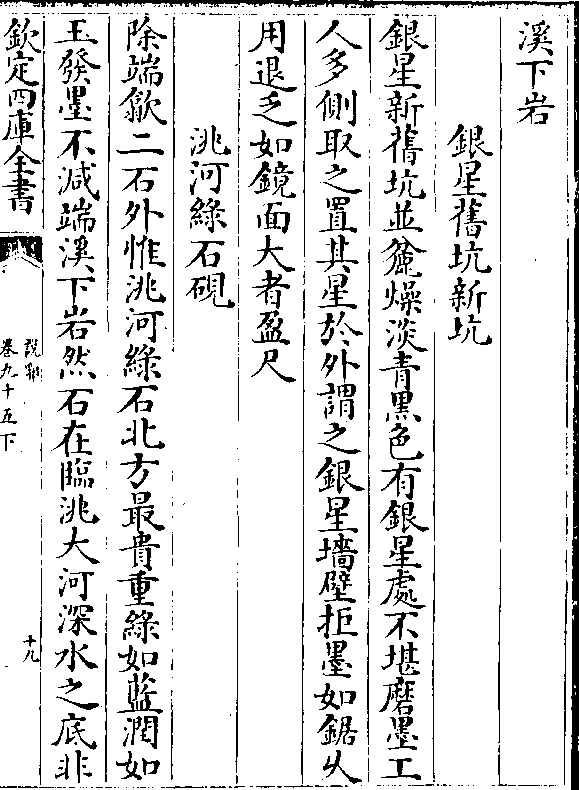 溪下岩
銀星舊坑新坑
銀星新舊坑並麄燥淡青黑色有銀星處不堪磨墨工
人多側取之置其星於外謂之銀星墻壁拒墨如鋸久
用退乏如鏡面大者盈尺
洮河綠石硯
除端歙二石外惟洮河綠石北方最貴重綠如藍潤如
玉發墨不減端溪下岩然石在臨洮大河深水之底非
欽定四庫全書
說郛
卷九十五下
十九